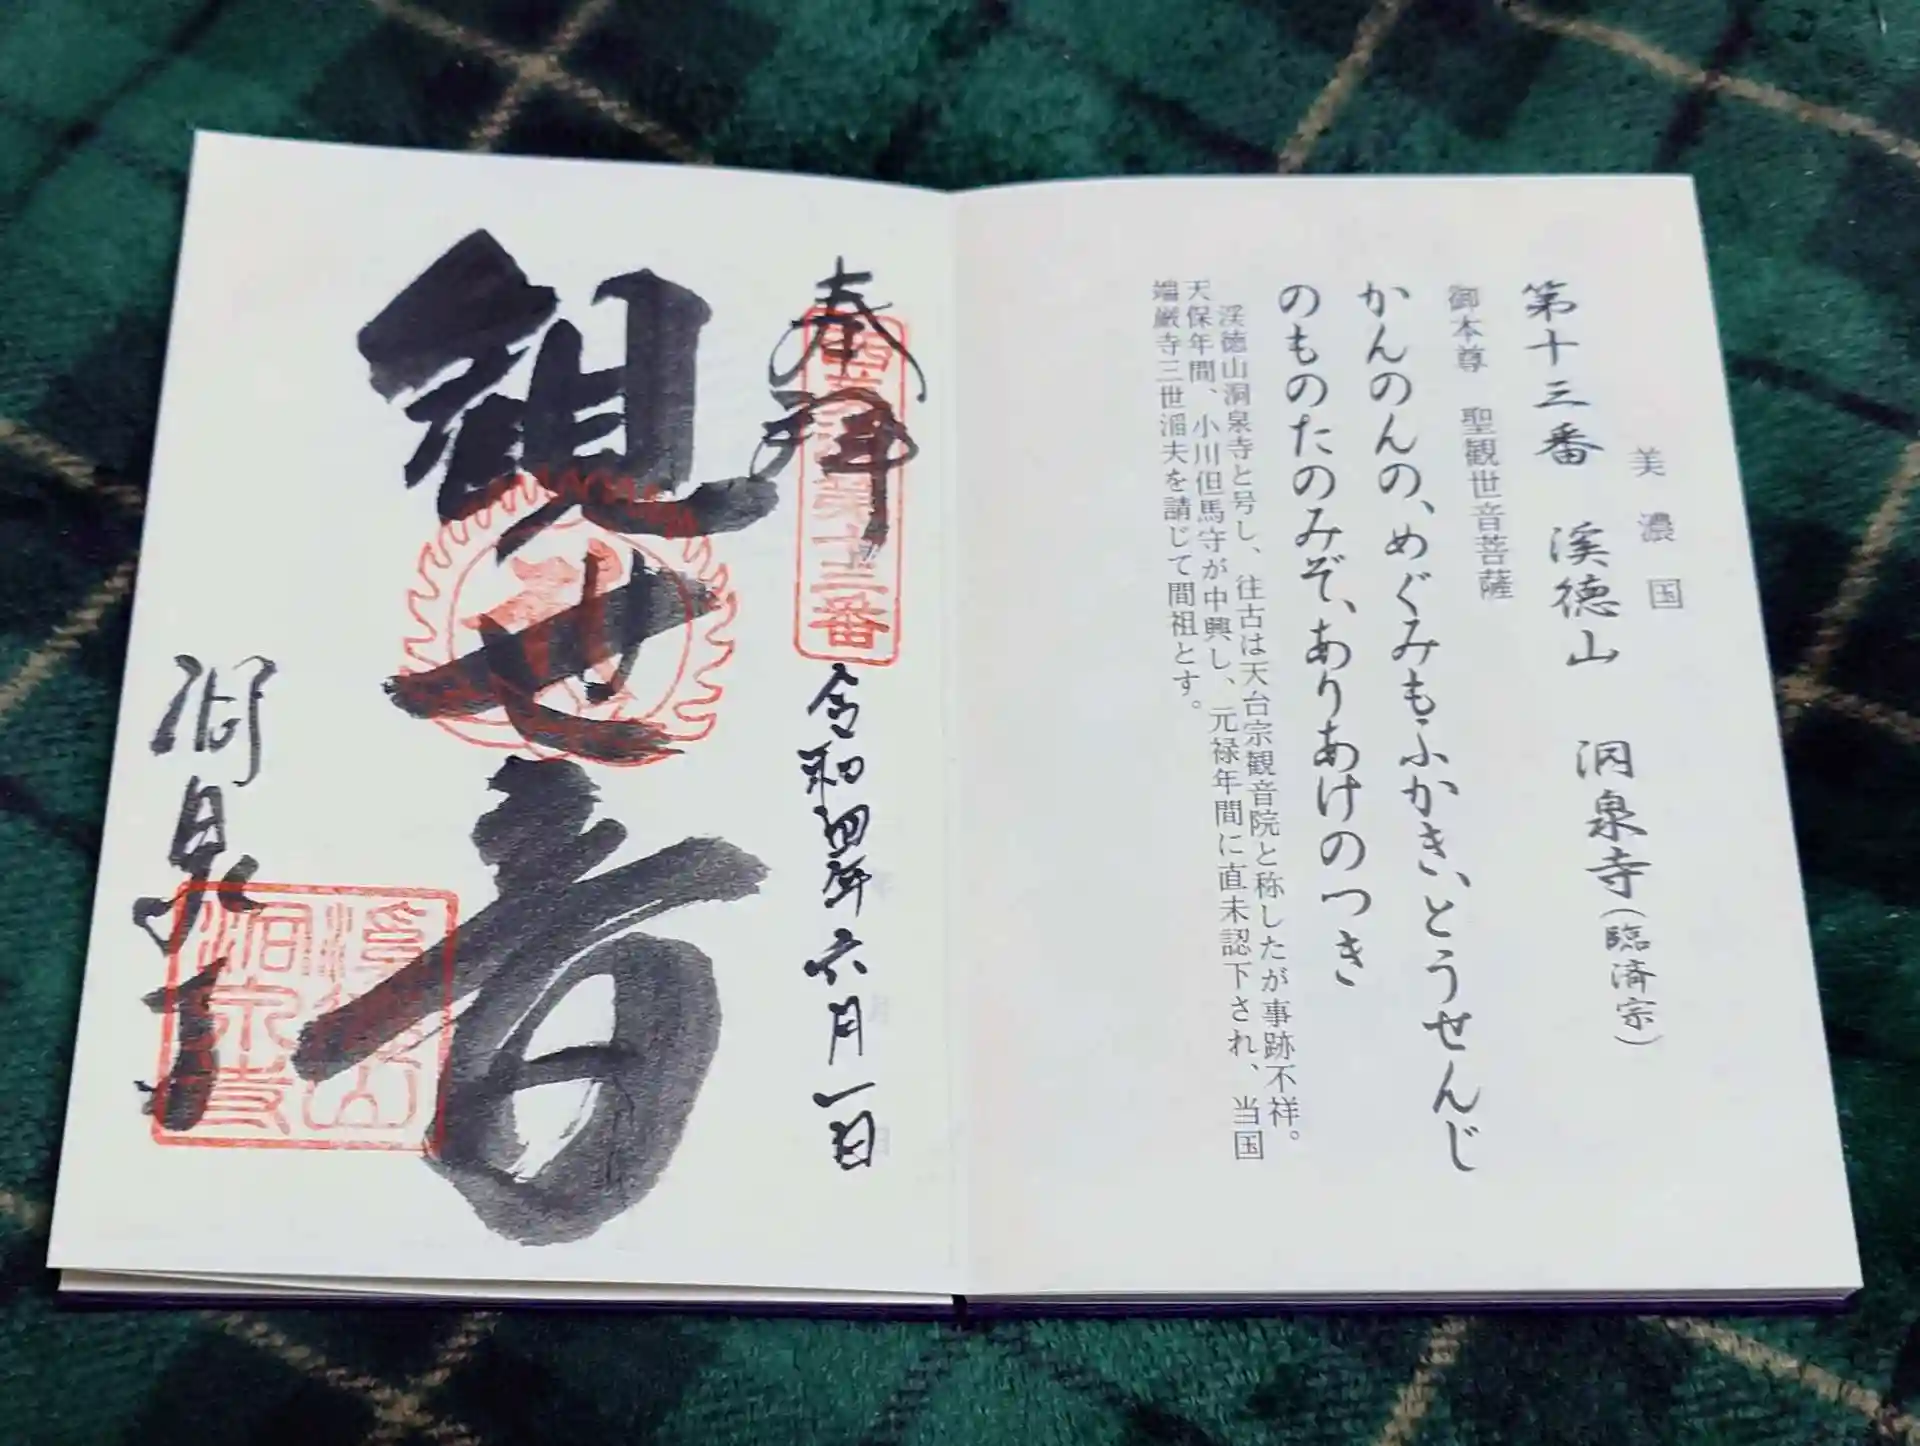 美濃国
第十三番 渓徳山 洞泉寺(臨済宗)
御本尊 聖観世音菩薩
かんのんの、めぐみもふかき、とうせんじ
のものたのみぞ、ありあけのつき
渓徳山洞泉寺と号し、往古は天台宗観音院と称したが事跡不祥。
天保年間、小川但馬守が中興し、元禄年間に直末認下され、当国
端巌寺三世湽夫を請じて開祖とす。
奉拝
第十三番
令和四年六月一日
観世音
洞泉寺
渓徳山
洞泉寺